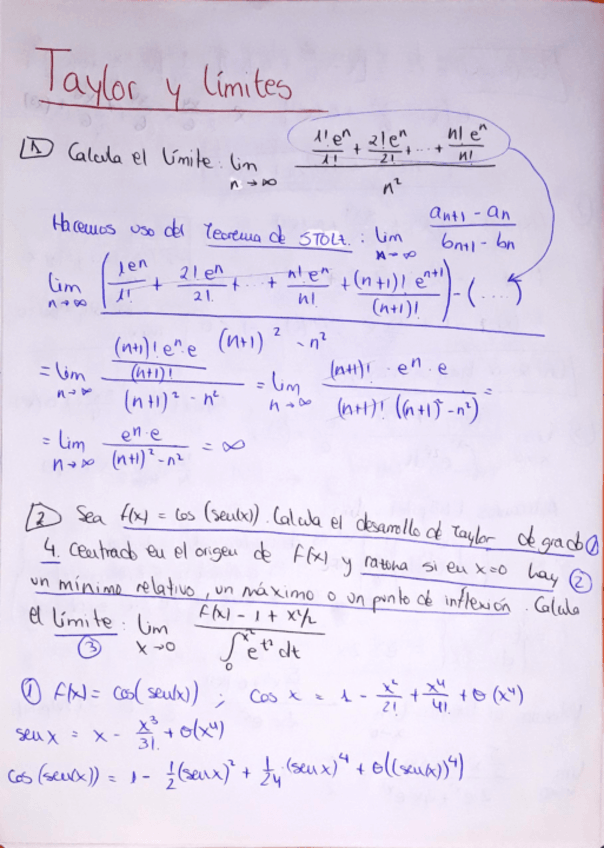 Taylor y límites
1 Calcula el límite: lim n→∞ (1!eⁿ/1! + 2!eⁿ/2! + ... + n!eⁿ/n!) / n²
Hacemos uso del Teorema de STOLZ: lim n→∞ (aₙ₊₁ - aₙ) / (bₙ₊₁ - bₙ)
lim n→∞ ((1eⁿ/1! + 2!eⁿ/2! + ... + n!eⁿ/n! + (n+1)!eⁿ⁺¹/(n+1)!) - (....)) / ((n+1)² - n²)
= lim n→∞ ((n+1)!eⁿ·e/(n+1)!) / ((n+1)² - n²) = lim n→∞ ((n+1)! · eⁿ · e) / ((n+1)! ((n+1)² - n²)) =
= lim n→∞ (eⁿ·e) / ((n+1)² - n²) = ∞
2 Sea f(x) = cos (sen(x)). Calcula el desarrollo de Taylor de grado ①
4. centrado en el origen de f(x), y razona si en x=0 hay ②
un mínimo relativo, un máximo o un punto de inflexión. Calcula
el límite: ③ lim x→0 (f(x) - 1 + x²/2) / ∫₀^(x²) e^(t²) dt
① f(x) = cos( sen(x)) ; cos x = 1 - x²/2! + x⁴/4! + θ(x⁴)
sen x = x - x³/3! + θ(x⁴)
cos (sen(x)) = 1 - 1/2 (sen x)² + 1/24 · (sen x)⁴ + θ((sen(x))⁴)